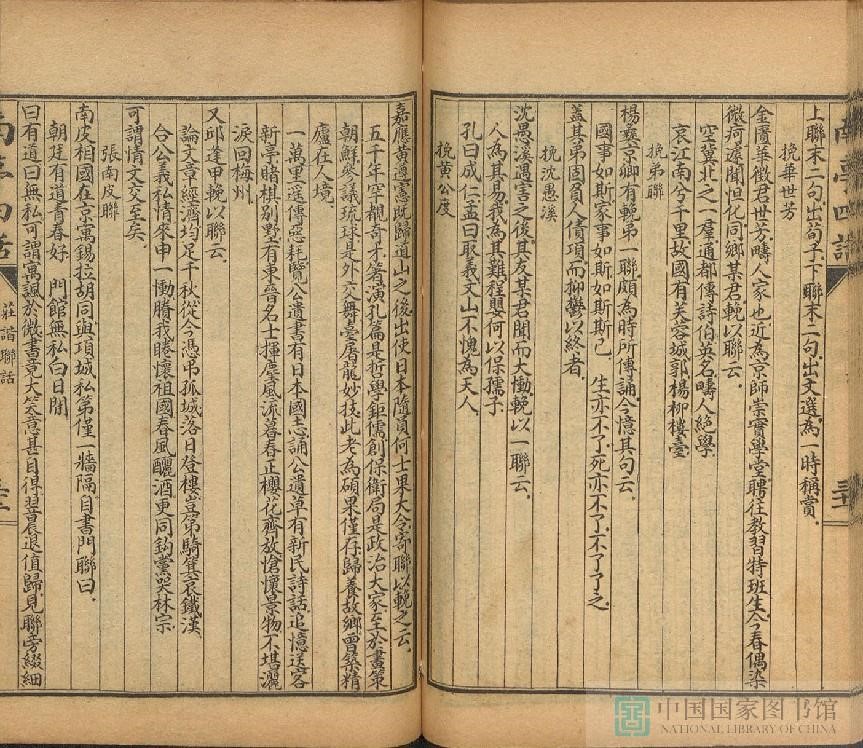 上聯末二句出荀子下聯末二句出文選為一時稱賞
輓華世芳
金匱華徵君世芳疇人家也近為京師崇實學堂聘往教習特班生今春偶染
微疴遽聞怛化同鄉某君輓以聯云
空冀北之一羣通都傳詩伯英名疇人絕學
哀江南兮千里故國有芙蓉城郭楊柳樓臺
輓弟聯
楊蓺京卿有輓弟一聯頗為時所傳誦今憶其句云
國事如斯家事如斯如斯斯已 生亦不了死亦不了不了了之
蓋其弟固負人債項而抑鬱以終者
輓沈愚溪
沈愚溪遇害之後其友某君聞而大慟輓以一聯云
人為其易我為其難程嬰何以保孺子
孔曰成仁孟曰取義文山不愧為天人
輓黃公度
嘉應黃遵憲既歸道山之後出使日本隨員何士果大令寄聯以輓之云
五千年罕覩奇才著演孔篇是哲學鉅儒創保衛局是政治大家至於書策
朝鮮參議琉球是外交舞臺屠龍妙技此老為碩果僅存歸養故鄉曾築精
廬在人境
一萬里遥傳惡耗覽公遺書有日本國志誦公遺草有新民詩話追憶送客
新亭賭棋別墅有東晉名士揮麈風流暮春正櫻花齊放愴懷景物不堪灑
淚回梅州
又邱逢甲輓以聯云
論文章經濟均足千秋從今憑弔孤城落日登樓豈第騎箕哀鐵漢
合公義私情來申一慟賸我睠懷祖國春風釃酒更同鈎黨哭林宗
可謂情文交至矣
張南皮聯
南皮相國在京寓錫拉胡同與項城私第僅一牆隔自書門聯曰
朝廷有道青春好 門館無私白日閒
曰有道曰無私可謂寓諷於微書竟大笑意甚自得翌晨退值歸見聯旁綴細
南亭四話
莊諧聯話